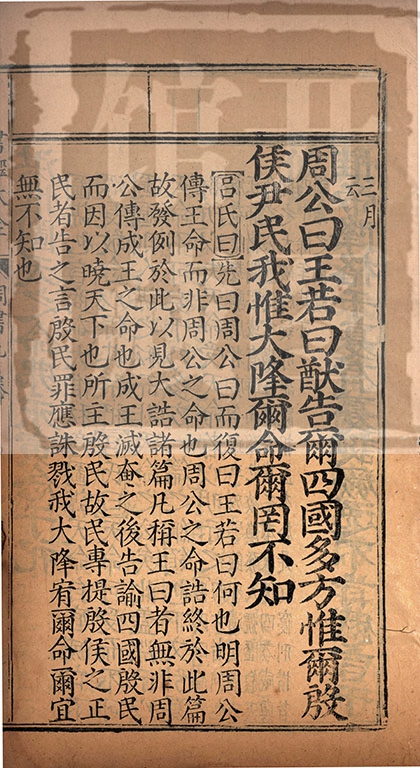 三月
云
周公曰王若曰猷告爾四國多方惟爾殷
侯尹民我惟大降爾命爾罔不知
呂氏曰先曰周公曰而復曰王若曰何也明周公
傳王命而非周公之命也周公之命誥終於此篇
故發例於此以見大誥諸篇凡稱王曰者無非周
公傳成王之命也成王滅奄之後告諭四國殷民
而因以曉天下也所王殷民故民專提殷侯之正
民者告之言殷民罪應誅戮我大降宥爾命爾宜
無不知也